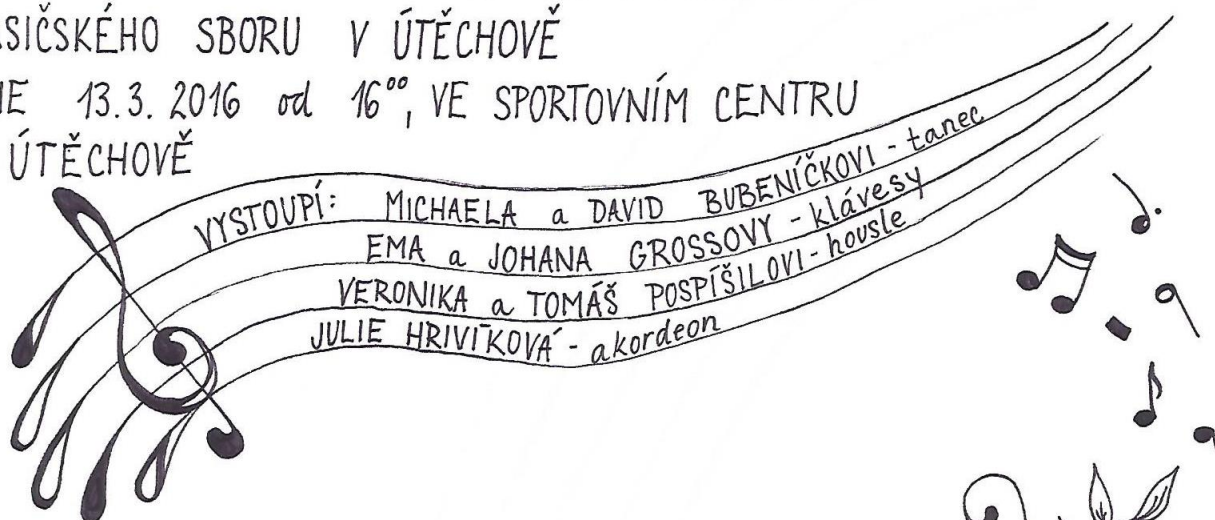 SIČSKÉHO SBORU V ÚTĚCHOVĚ
E 13.3. 2016 od 16⁰⁰, VE SPORTOVNÍM CENTRU
ÚTĚCHOVĚ
VYSTOUPÍ: MICHAELA a DAVID BUBENÍČKOVI - tanec
EMA a JOHANA GROSSOVY - klávesy
VERONIKA a TOMÁŠ POSPÍŠILOVI - housle
JULIE HRIVÍKOVÁ - akordeon